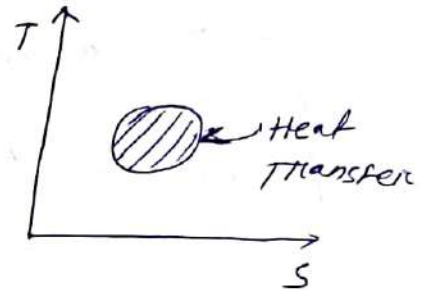 T
Heat
Transfer
S